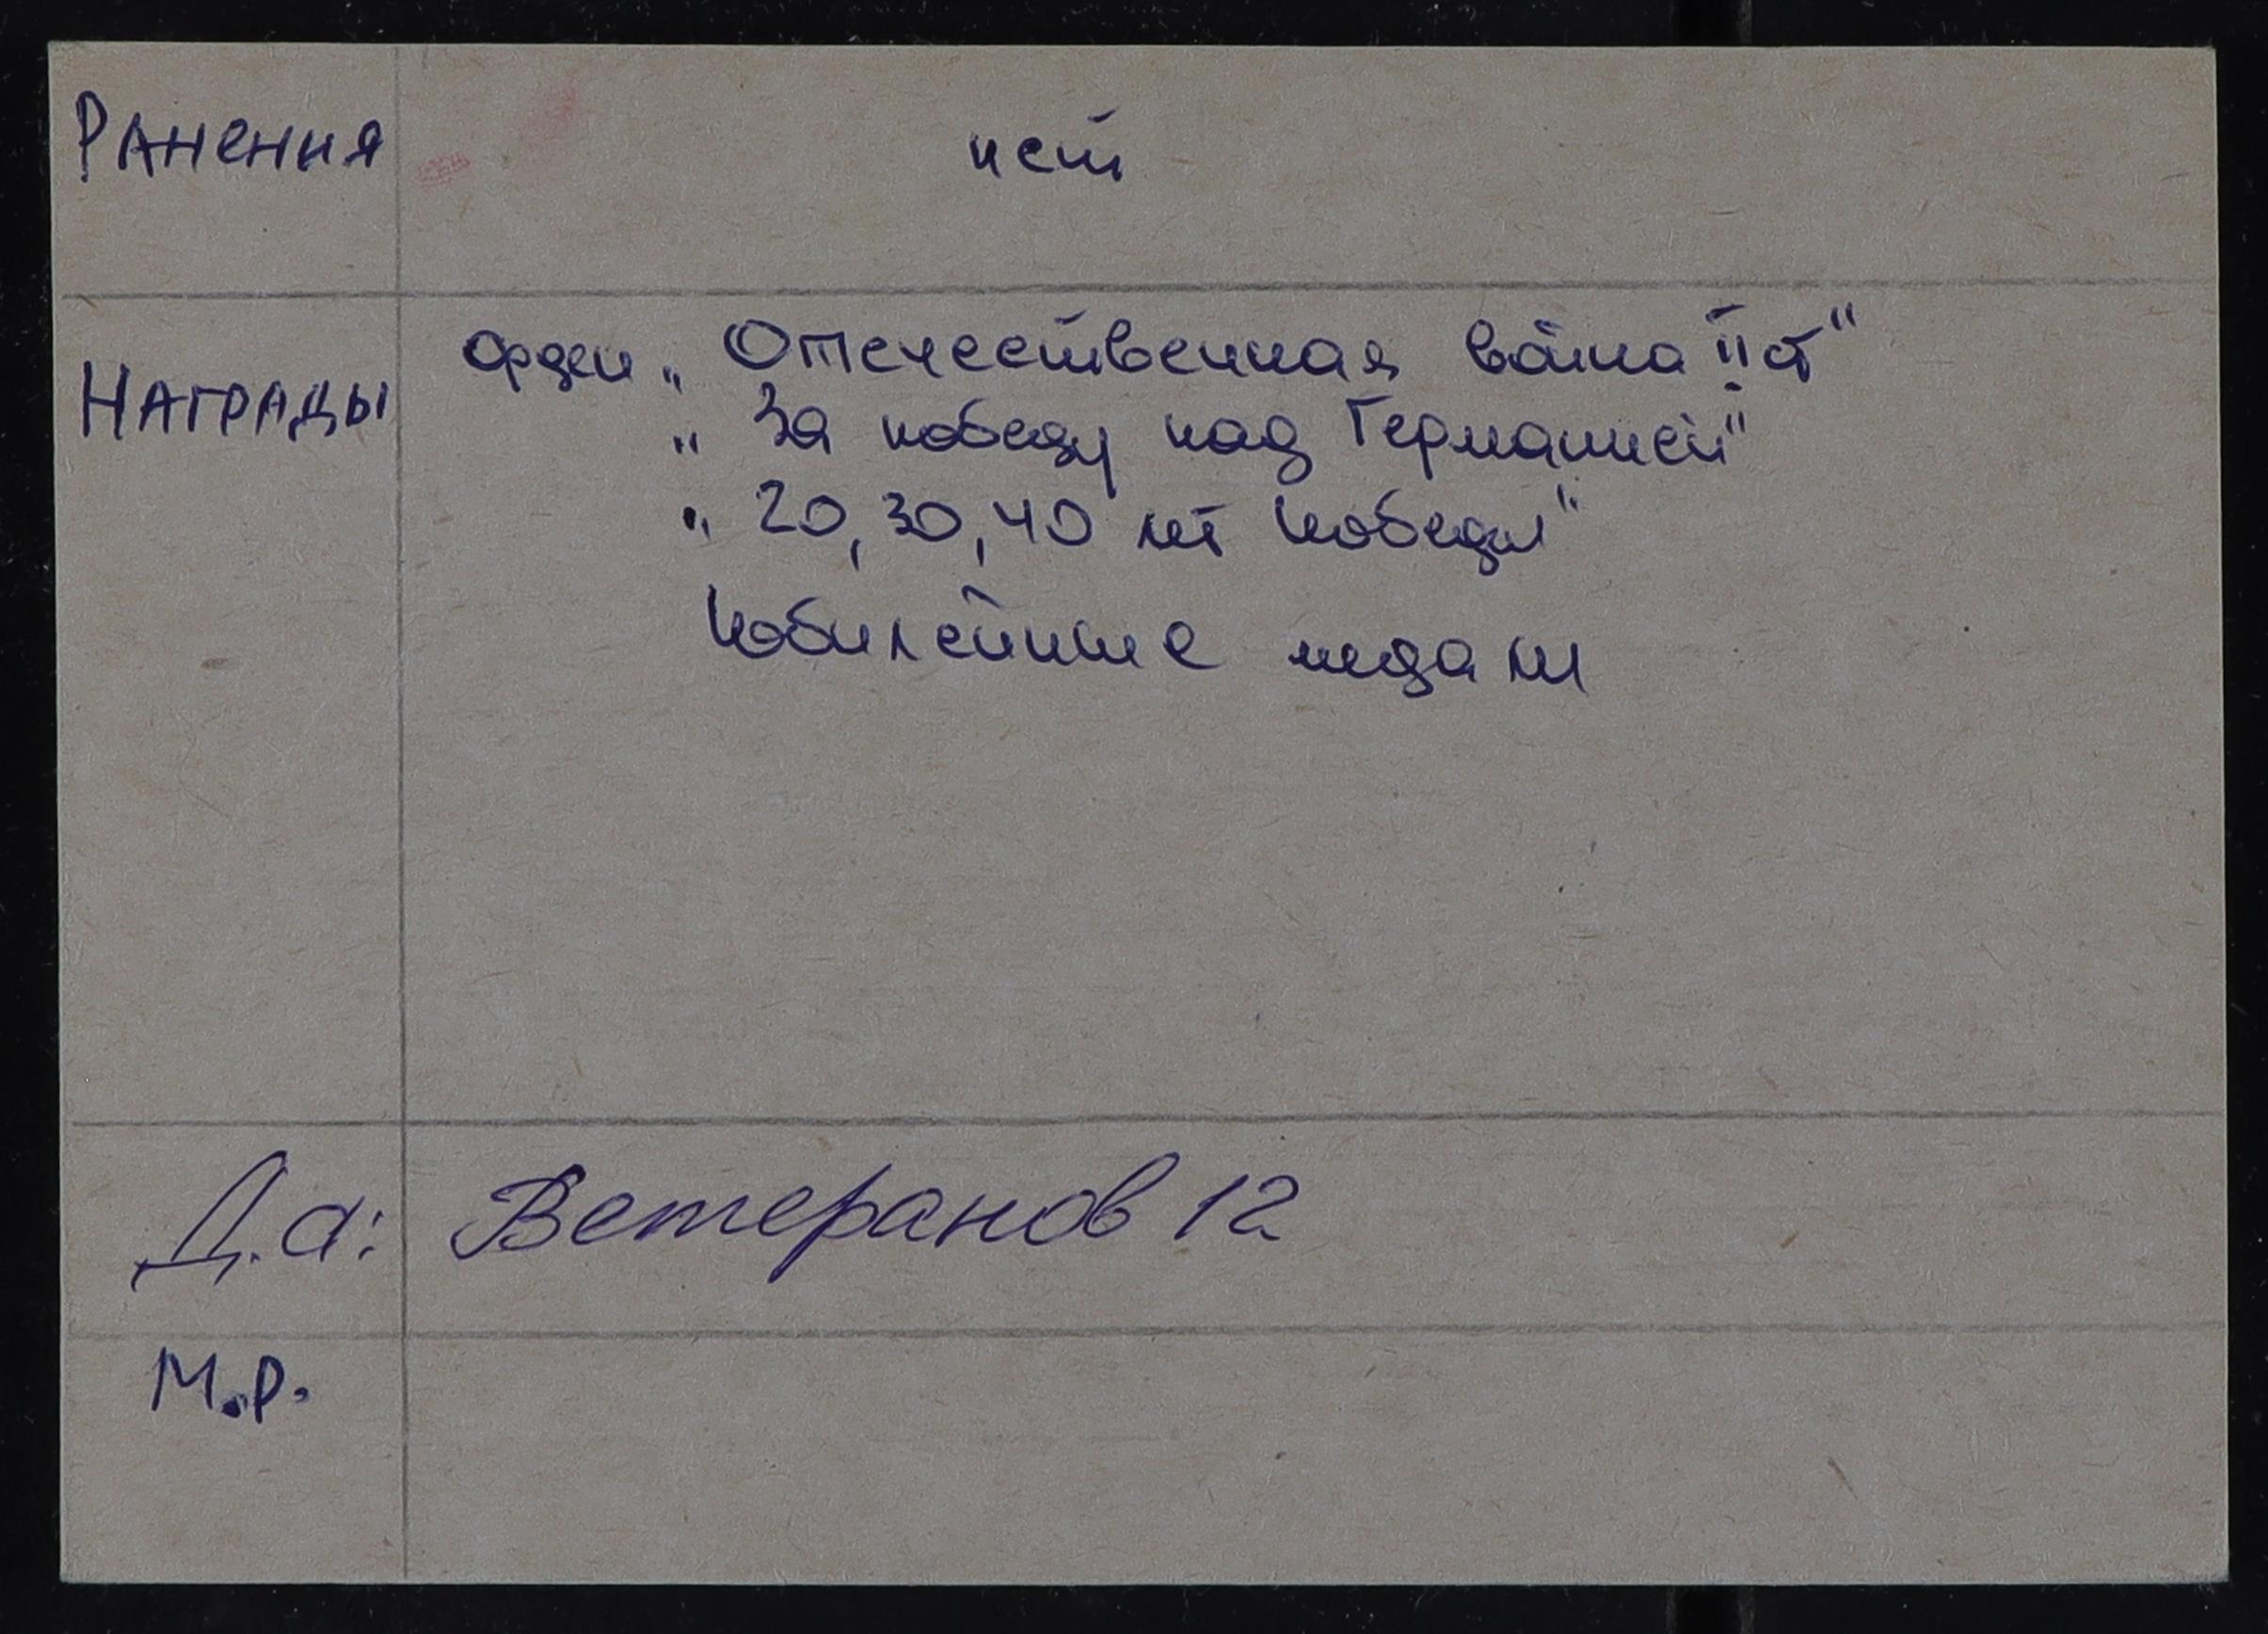 Ранения нет
Награды
Орден „Отечественная война II ст"
„За победу над Германией"
„20, 30, 40 лет Победы"
Юбилейные медали
Д.а: Ветеранов 12
М.р.